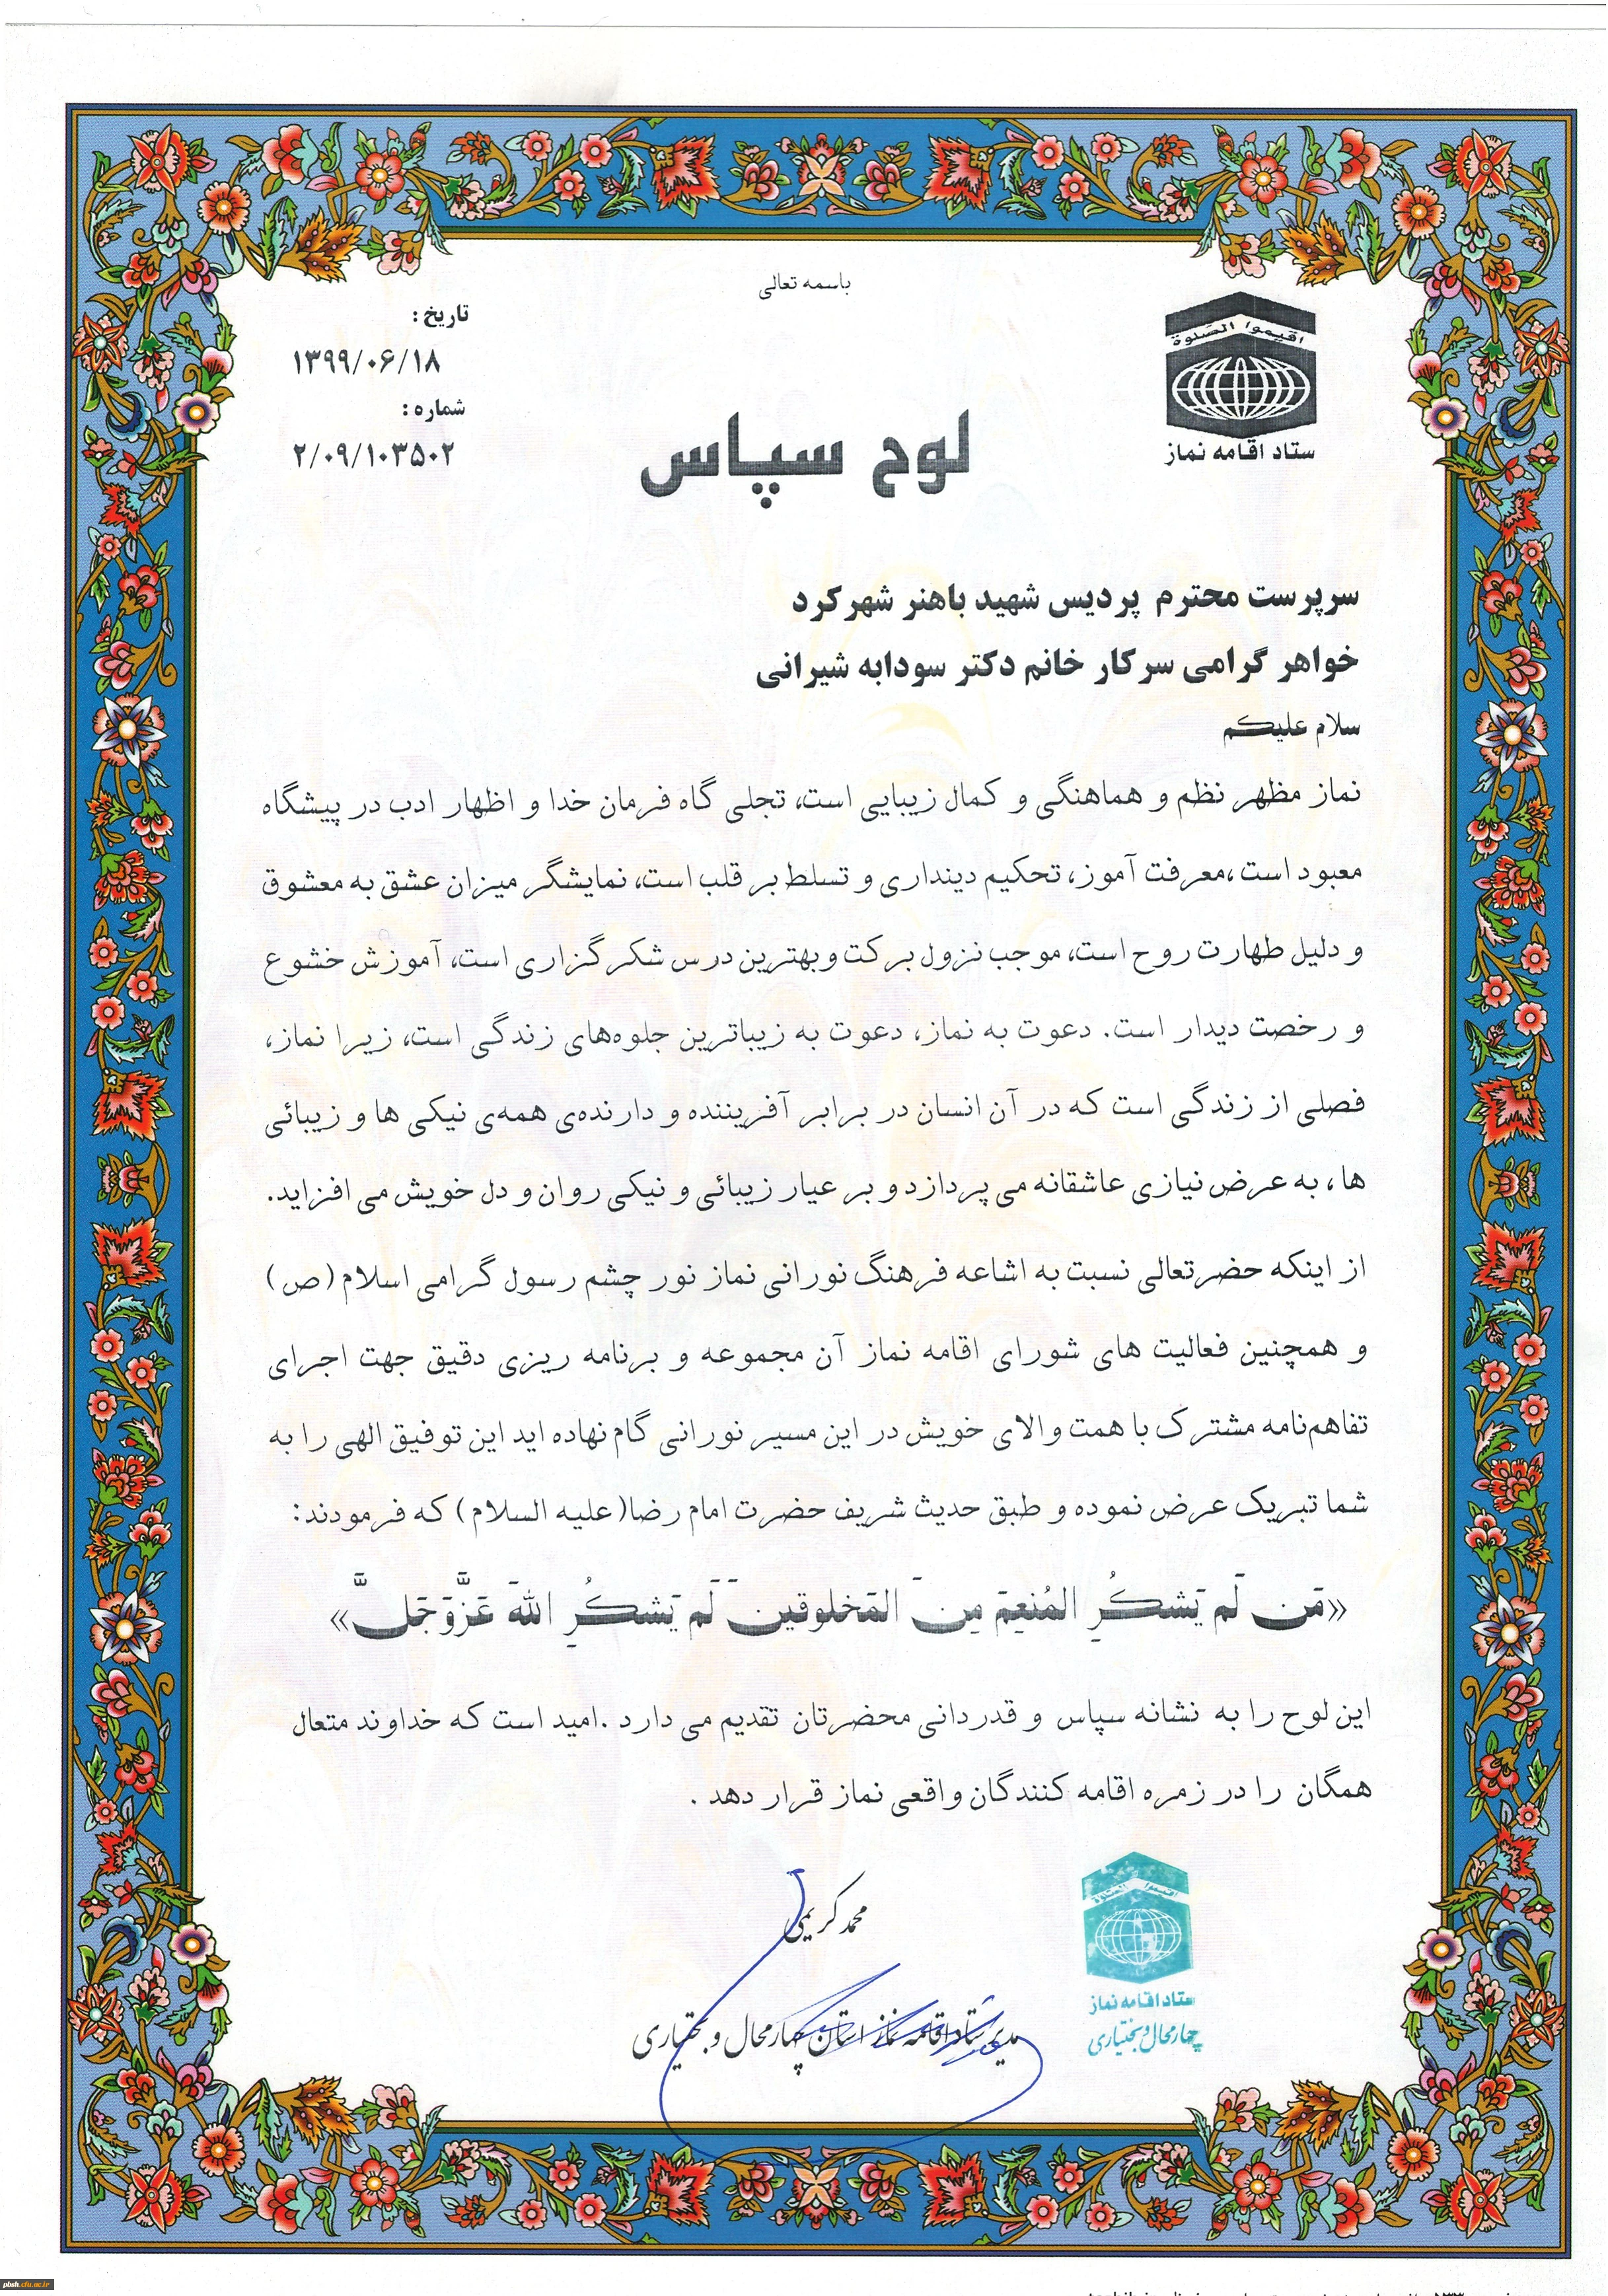 باسمه تعالی
اقیموا الصلوة
ستاد اقامه نماز
تاریخ :
۱۳۹۹/۰۶/۱۸
شماره :
۲/۰۹/۱۰۳۵۰۲
لوح سپاس
سرپرست محترم پردیس شهید باهنر شهرکرد
خواهر گرامی سرکار خانم دکتر سودابه شیرانی
سلام علیکم
نماز مظهر نظم و هماهنگی و کمال زیبایی است، تجلی گاه فرمان خدا و اظهار ادب در پیشگاه
معبود است ،معرفت آموز، تحکیم دینداری و تسلط بر قلب است، نمایشگر میزان عشق به معشوق
و دلیل طهارت روح است، موجب نزول برکت وبهترین درس شکرگزاری است، آموزش خشوع
و رخصت دیدار است. دعوت به نماز، دعوت به زیباترین جلوه‌های زندگی است، زیرا نماز،
فصلی از زندگی است که در آن انسان در برابر آفریننده و دارنده‌ی همه‌ی نیکی ها و زیبائی
ها ، به عرض نیازی عاشقانه می پردازد و بر عیار زیبائی و نیکی روان و دل خویش می افزاید.
از اینکه حضرتعالی نسبت به اشاعه فرهنگ نورانی نماز نور چشم رسول گرامی اسلام (ص)
و همچنین فعالیت های شورای اقامه نماز آن مجموعه و برنامه ریزی دقیق جهت اجرای
تفاهم‌نامه مشترک با همت والای خویش در این مسیر نورانی گام نهاده اید این توفیق الهی را به
شما تبریک عرض نموده و طبق حدیث شریف حضرت امام رضا(علیه السلام) که فرمودند:
«مَن لَم یَشکُرِ المُنعِمَ مِنَ المَخلوقینَ لَم یَشکُرِ اللهَ عَزَّوَجَلَّ»
این لوح را به نشانه سپاس و قدردانی محضرتان تقدیم می دارد .امید است که خداوند متعال
همگان را در زمره اقامه کنندگان واقعی نماز قرار دهد .
محمد کریمی
مدیر ستاد اقامه نماز استان چهارمحال و بختیاری
اقیموا الصلوة
ستاد اقامه نماز
چهارمحال و بختیاری
pbsh.cfu.ac.ir